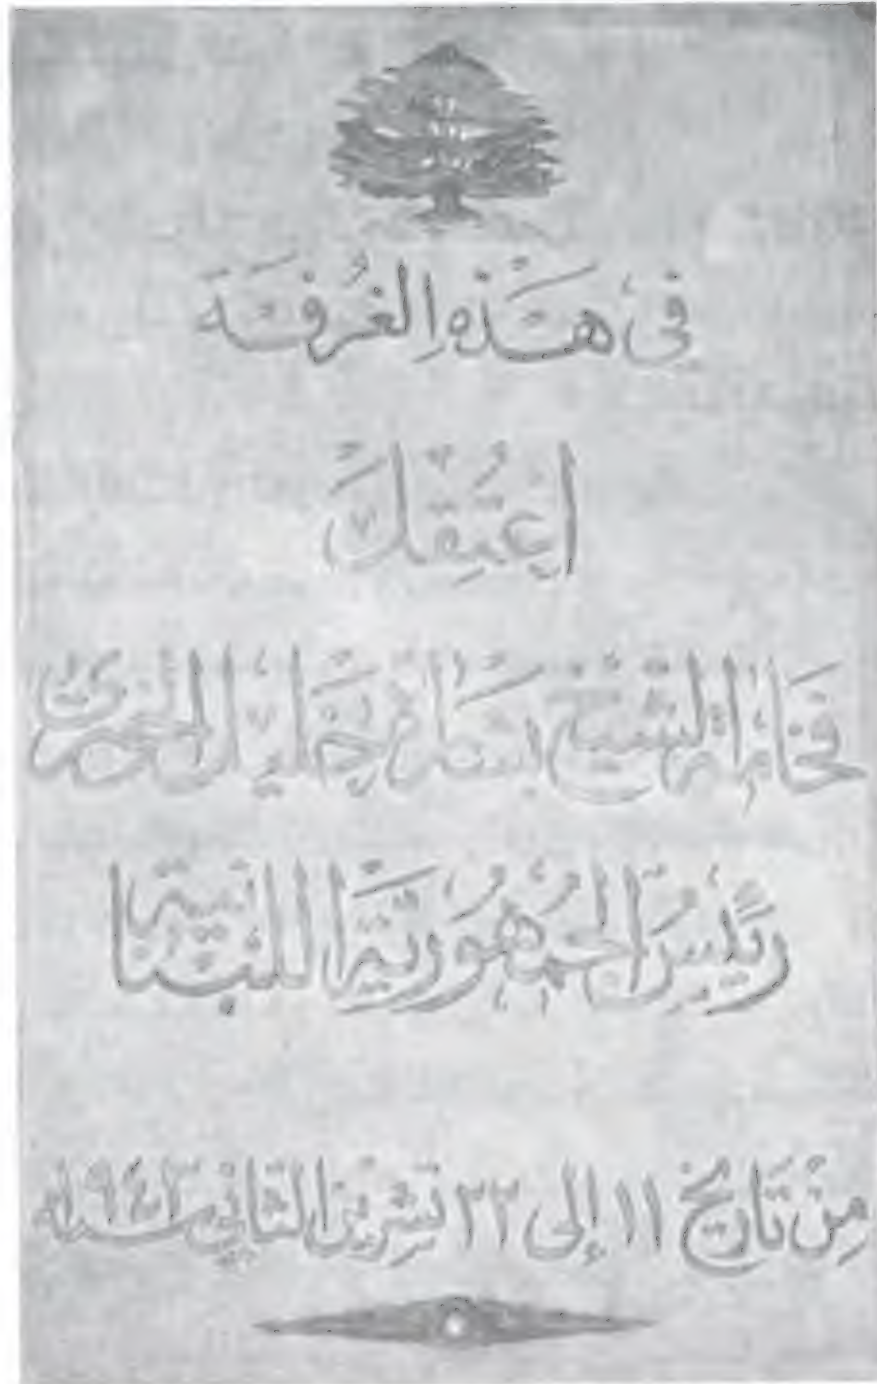 في هَذِهِ الغُرفَة
اعتُقِلَ
فخامة الشيخ بشاره خليل الخوري
رئيسُ الجُمهُوريَّة اللبنانية
مِنْ تَاريخ ١١ إلى ٢٢ تشرين الثاني سنة ١٩٤٣